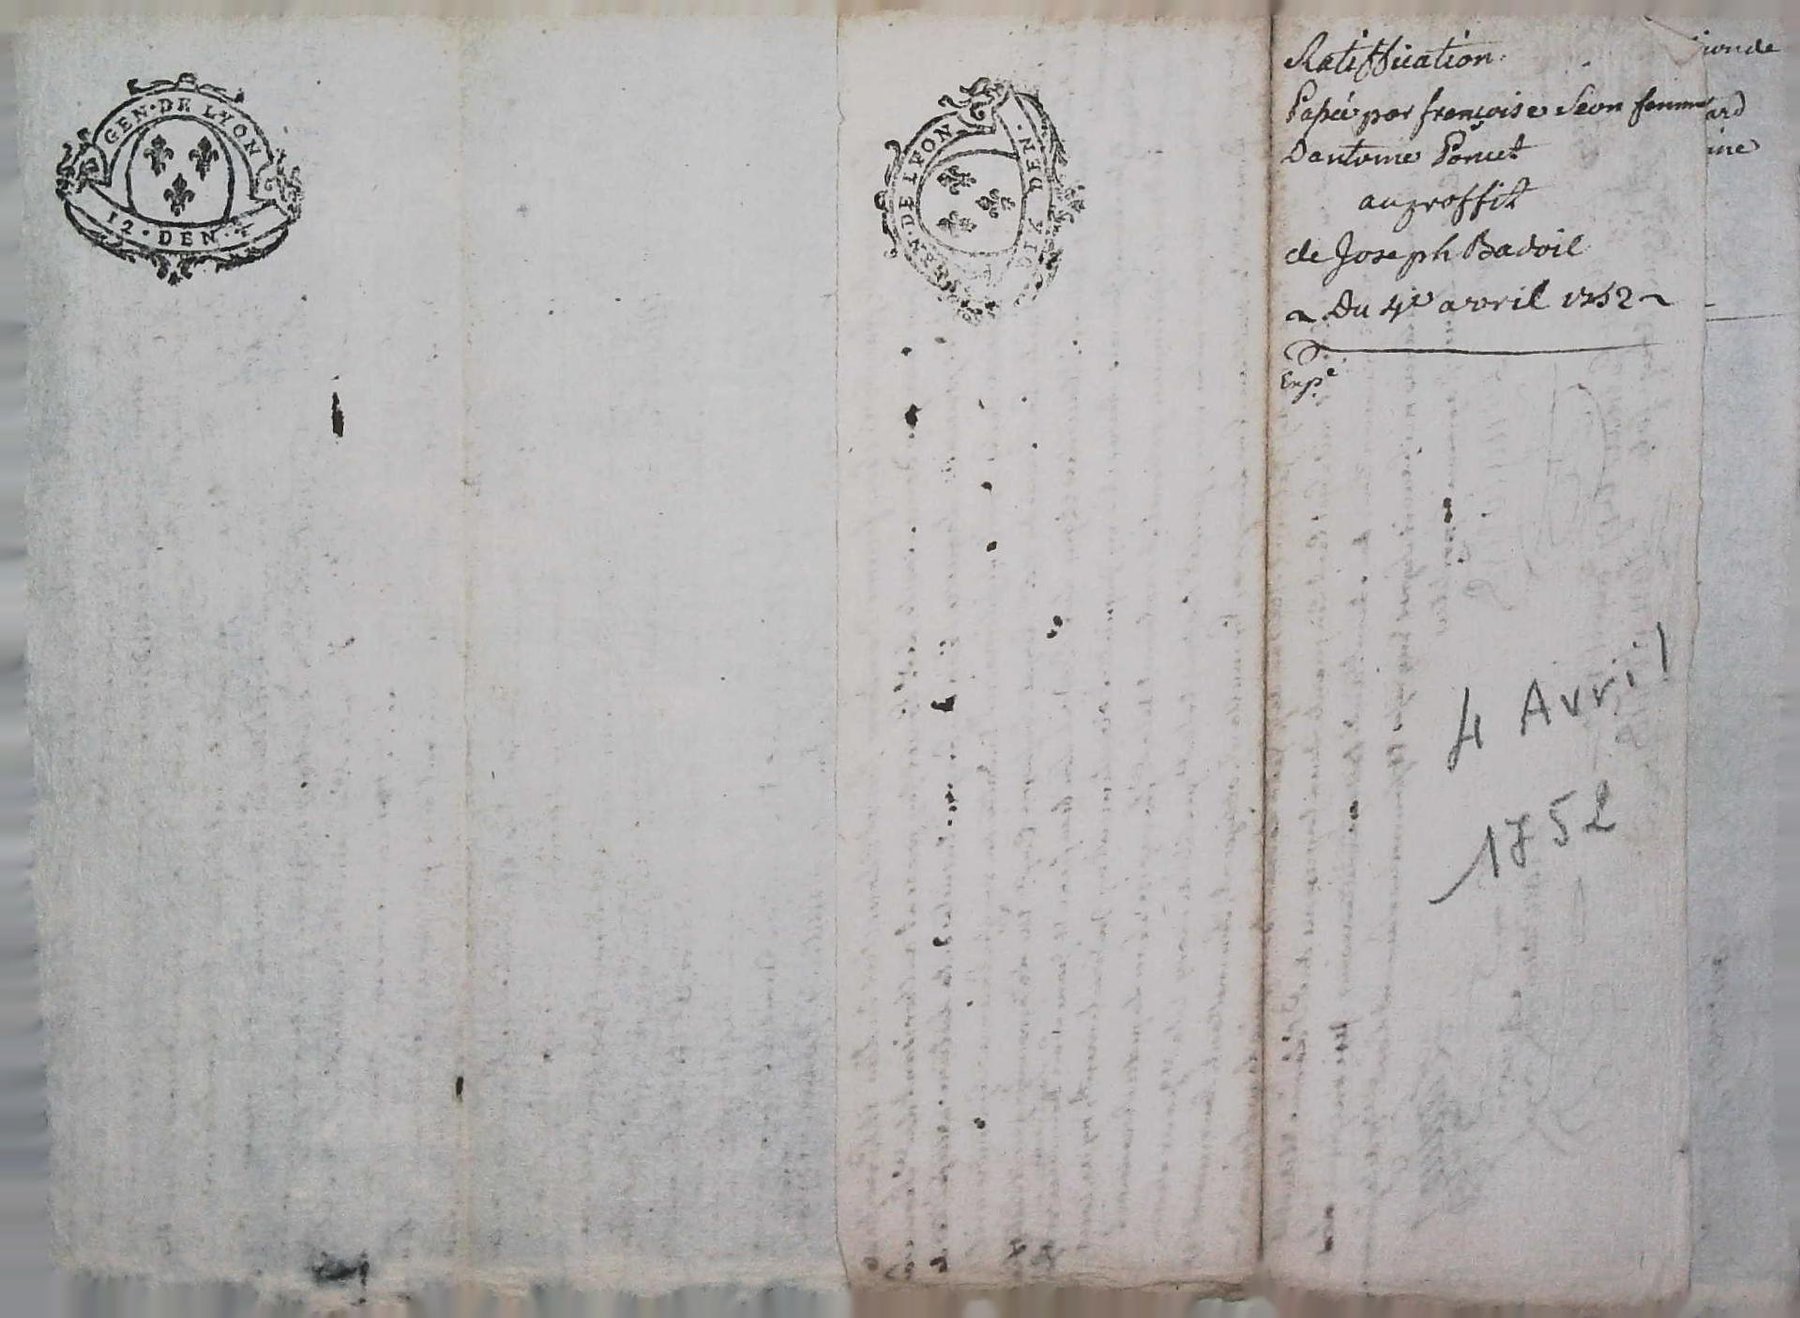 GEN · DE LYON
12 · DEN · 4
GEN · DE LYON
DIX DEN ·
Ratiffication
Passée par françoise Seon femme
Dantoine Poncet
au proffit
de Joseph Badoil
Du 4e avril 1752
Expé
4 Avril
1752
ard
ine